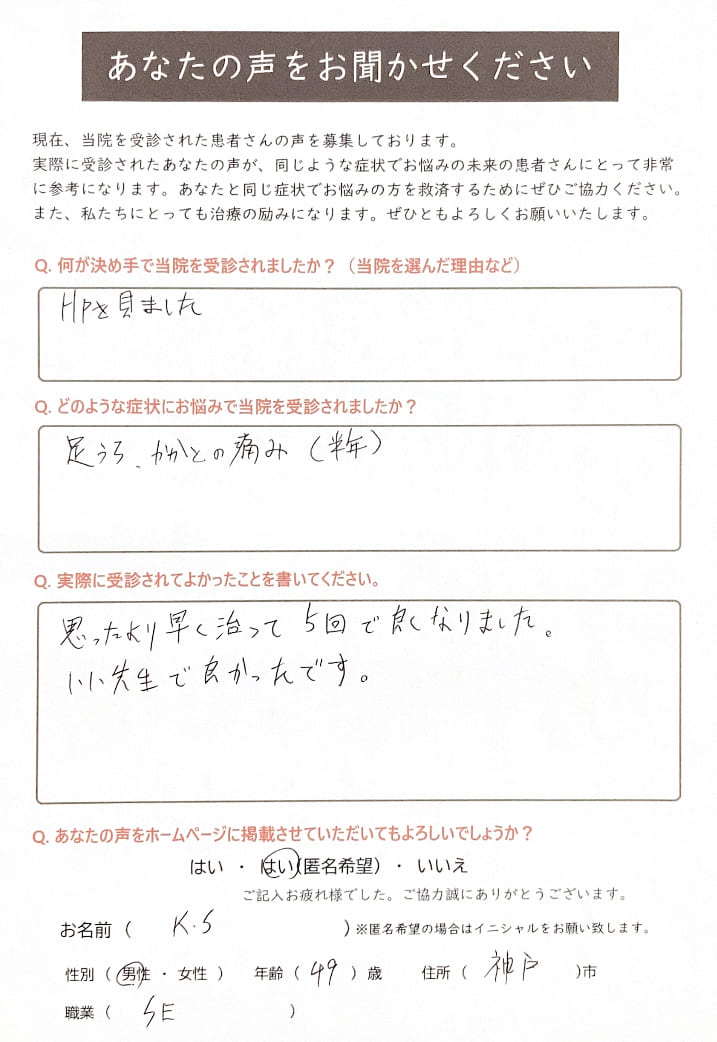 あなたの声をお聞かせください
現在、当院を受診された患者さんの声を募集しております。
実際に受診されたあなたの声が、同じような症状でお悩みの未来の患者さんにとって非常
に参考になります。あなたと同じ症状でお悩みの方を救済するためにぜひご協力ください。
また、私たちにとっても治療の励みになります。ぜひともよろしくお願いいたします。
Q. 何が決め手で当院を受診されましたか？（当院を選んだ理由など）
HPを見ました
Q. どのような症状にお悩みで当院を受診されましたか？
足うら、かかとの痛み（半年）
Q. 実際に受診されてよかったことを書いてください。
思ったより早く治って5回で良くなりました。
いい先生で良かったです。
Q. あなたの声をホームページに掲載させていただいてもよろしいでしょうか？
はい ・ はい(匿名希望) ・ いいえ
ご記入お疲れ様でした。ご協力誠にありがとうございます。
お名前（ K.S ）※匿名希望の場合はイニシャルをお願い致します。
性別（ 男性 ・ 女性 ） 年齢（ 49 ）歳 住所（ 神戸 )市
職業（ SE ）